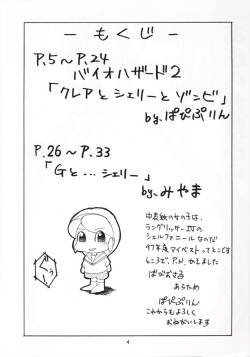 ー もくじ ー
P.5〜P.24
バイオハザード2
「クレアとシェリーとゾンビ」
by.ぱぴぷりん
P.26〜P.33
「Gと...シェリー」
by.みやま
中表紙の女の子は、
ラングリッサーⅣの
シェルファニールなのだ
97年度マイベストってとこです
ところで、P.N.かえました
あらため
ぱぴぷりん
これからもよろしく
おねがいします
4